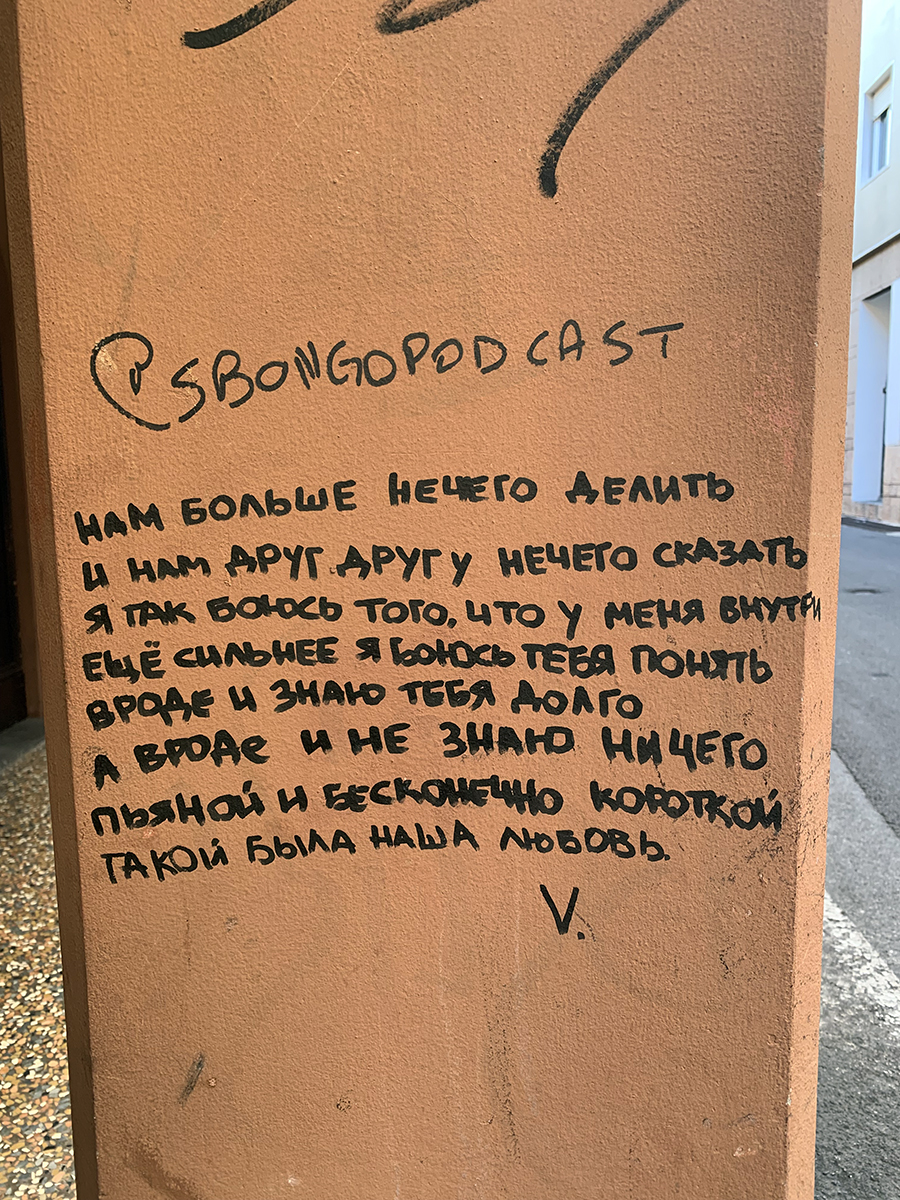 @SBONGOPODCAST
НАМ БОЛЬШЕ НЕЧЕГО ДЕЛИТЬ
И НАМ ДРУГ ДРУГУ НЕЧЕГО СКАЗАТЬ
Я ТАК БОЮСЬ ТОГО, ЧТО У МЕНЯ ВНУТРИ
ЕЩЁ СИЛЬНЕЕ Я БОЮСЬ ТЕБЯ ПОНЯТЬ
ВРОДЕ И ЗНАЮ ТЕБЯ ДОЛГО
А ВРОДЕ И НЕ ЗНАЮ НИЧЕГО
ПЬЯНОЙ И БЕСКОНЕЧНО КОРОТКОЙ
ТАКОЙ БЫЛА НАША ЛЮБОВЬ.
V.